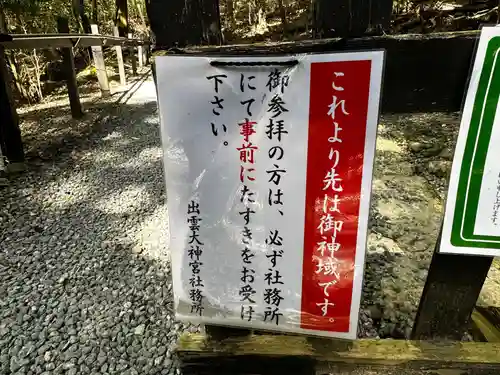 これより先は御神域です。
御参拝の方は、必ず社務所
にて事前にたすきをお受け
下さい。
出雲大神宮社務所